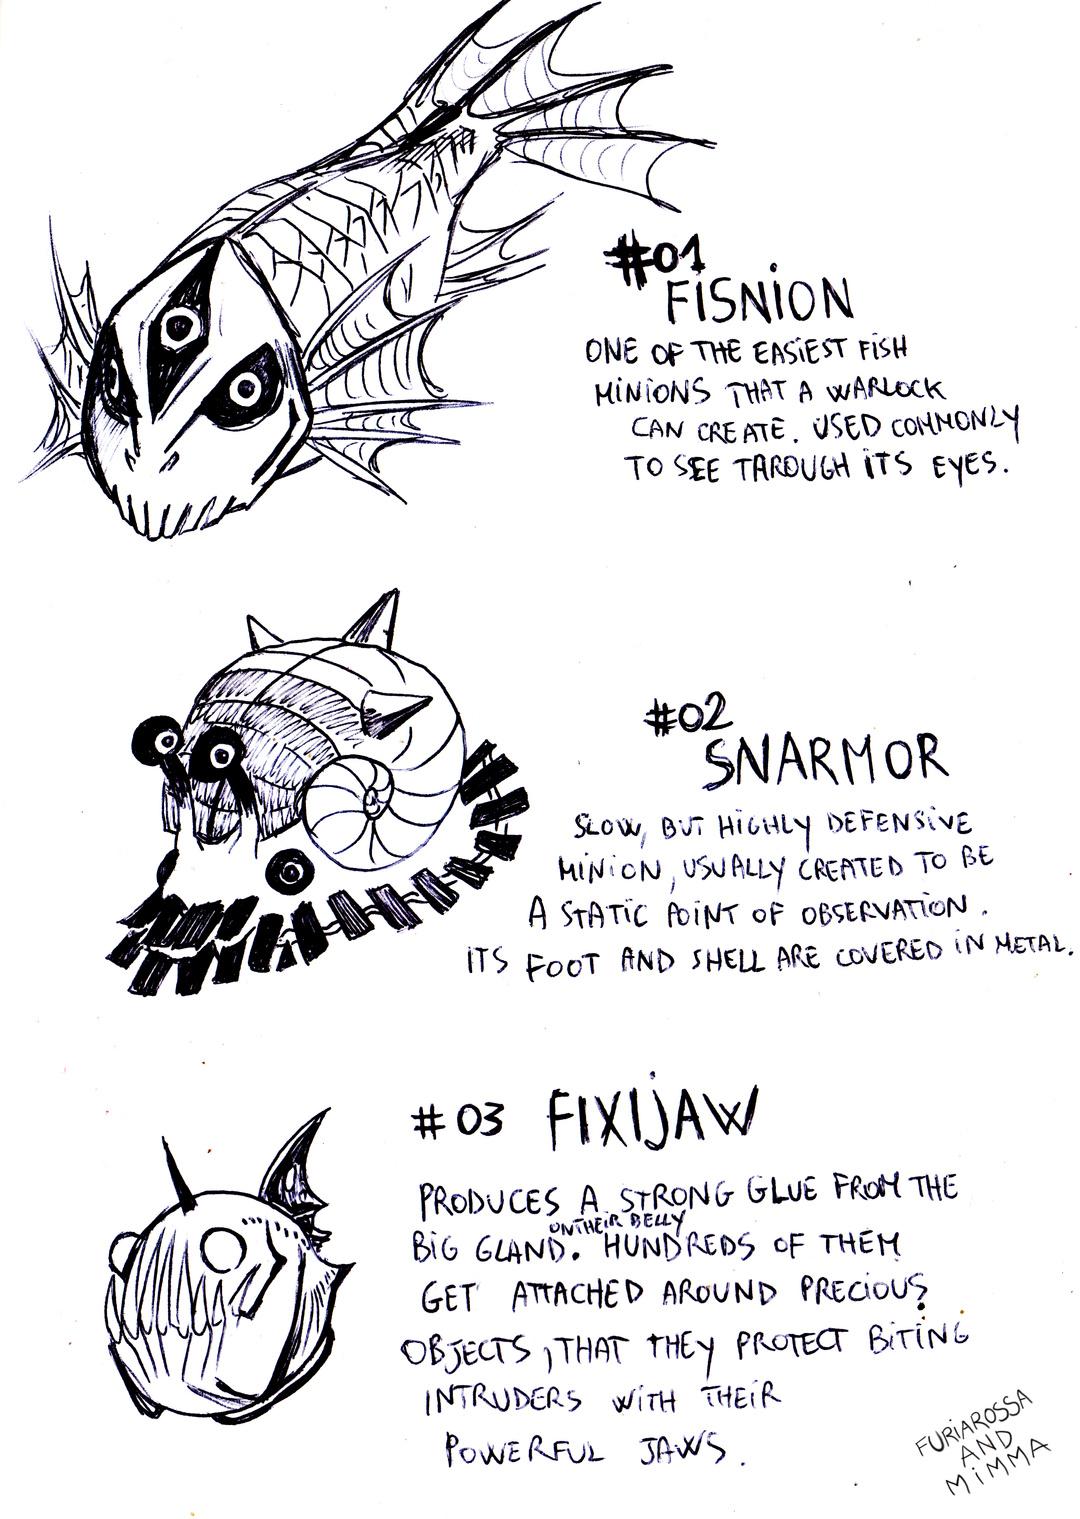 #01
FISNION
ONE OF THE EASIEST FISH
MINIONS THAT A WARLOCK
CAN CREATE. USED COMMONLY
TO SEE TAROUGH ITS EYES.
#02
SNARMOR
SLOW, BUT HIGHLY DEFENSIVE
MINION, USUALLY CREATED TO BE
A STATIC POINT OF OBSERVATION.
ITS FOOT AND SHELL ARE COVERED IN METAL.
#03 FIXIJAW
PRODUCES A STRONG GLUE FROM THE
ON THEIR BELLY
BIG GLAND. HUNDREDS OF THEM
GET ATTACHED AROUND PRECIOUS
OBJECTS, THAT THEY PROTECT BITING
INTRUDERS WITH THEIR
POWERFUL JAWS.
FURIAROSSA
AND
MIMMA